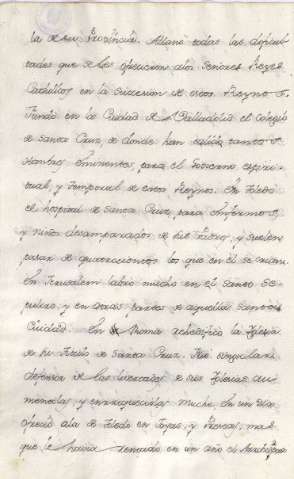 la de su Provincia. Allanó todas las dificul-
tades que se les ofrecieron a los Señores Reyes
Catholicos en la Sucesion de estos Reynos.
Fundó en la Ciudad de Valladolid el Colegio
de Santa Cruz de donde han salido tantos
Hombres Eminentes, para el Govierno espiri-
tual, y Temporal de estos Reynos. En Toledo
el hospital de Santa Cruz, para enfermos,
y niños desamparados de sus Padres, y suelen
pasar de quatrocientos los que en él se crian.
En Jerusalem labró mucho en el Santo Se-
pulcro, y en otras partes de aquella Santa
Ciudad. En Roma reedificó la Yglesia
de su Titulo de Santa Cruz. Fué singular
defensor de las livertades de sus Yglesias au-
mentolas y enriqueciolas mucho. En un dia
ofreció a la de Toledo en Joyas, y Preseas, mas
que le havia rentado en un año el Arzobispado